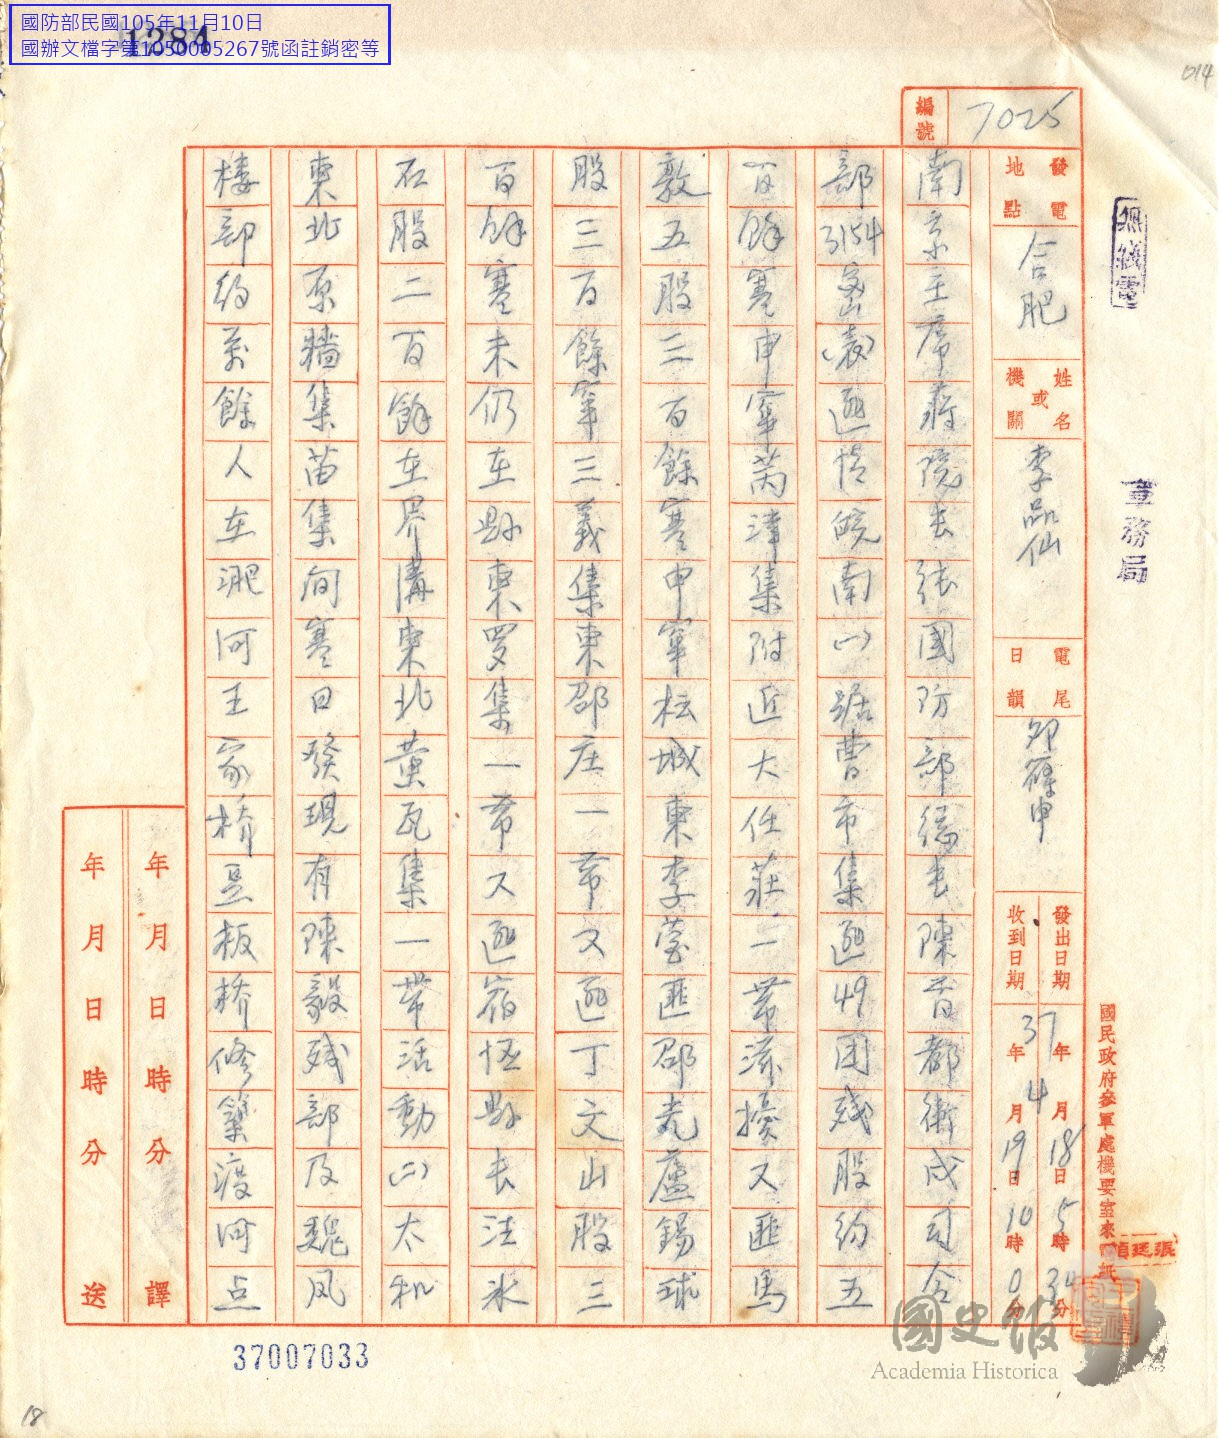 國防部民國105年11月10日
國辦文檔字第1050005267號函註銷密等
1284
014
無線電
軍務局
國民政府參軍處機要室來電紙
編號 7025
發電地點 合肥
姓名或機關 李品仙
電尾日韻 卯篠申
發出日期 37年4月18日5時34分
收到日期 37年4月19日10時0分
南京主席蔣院長張國防部總長陳首都衛戍司令
部3154密(表)匪情皖南(一)踞曹市集匪49团殘股約五
百餘寒申竄芮津集附近大任莊一帶流擾又匪馬
敦五股三百餘寒申竄枟城東李营匪邵光廬錫球
股三百餘竄三義集東邵庄一帶又匪丁文山股三
百餘寒未仍在縣東罗集一帶又匪宿恆縣長汪氷
石股二百餘在界溝東北黄瓦集一带活動(二)太和
東北原牆集苗集间寒日發現有陳毅残部及魏风
楼部約萬餘人在淝河王家桥昙板桥修築渡河点
年月日時分譯
年月日時分送
37007033
國史館
Academia Historica
18